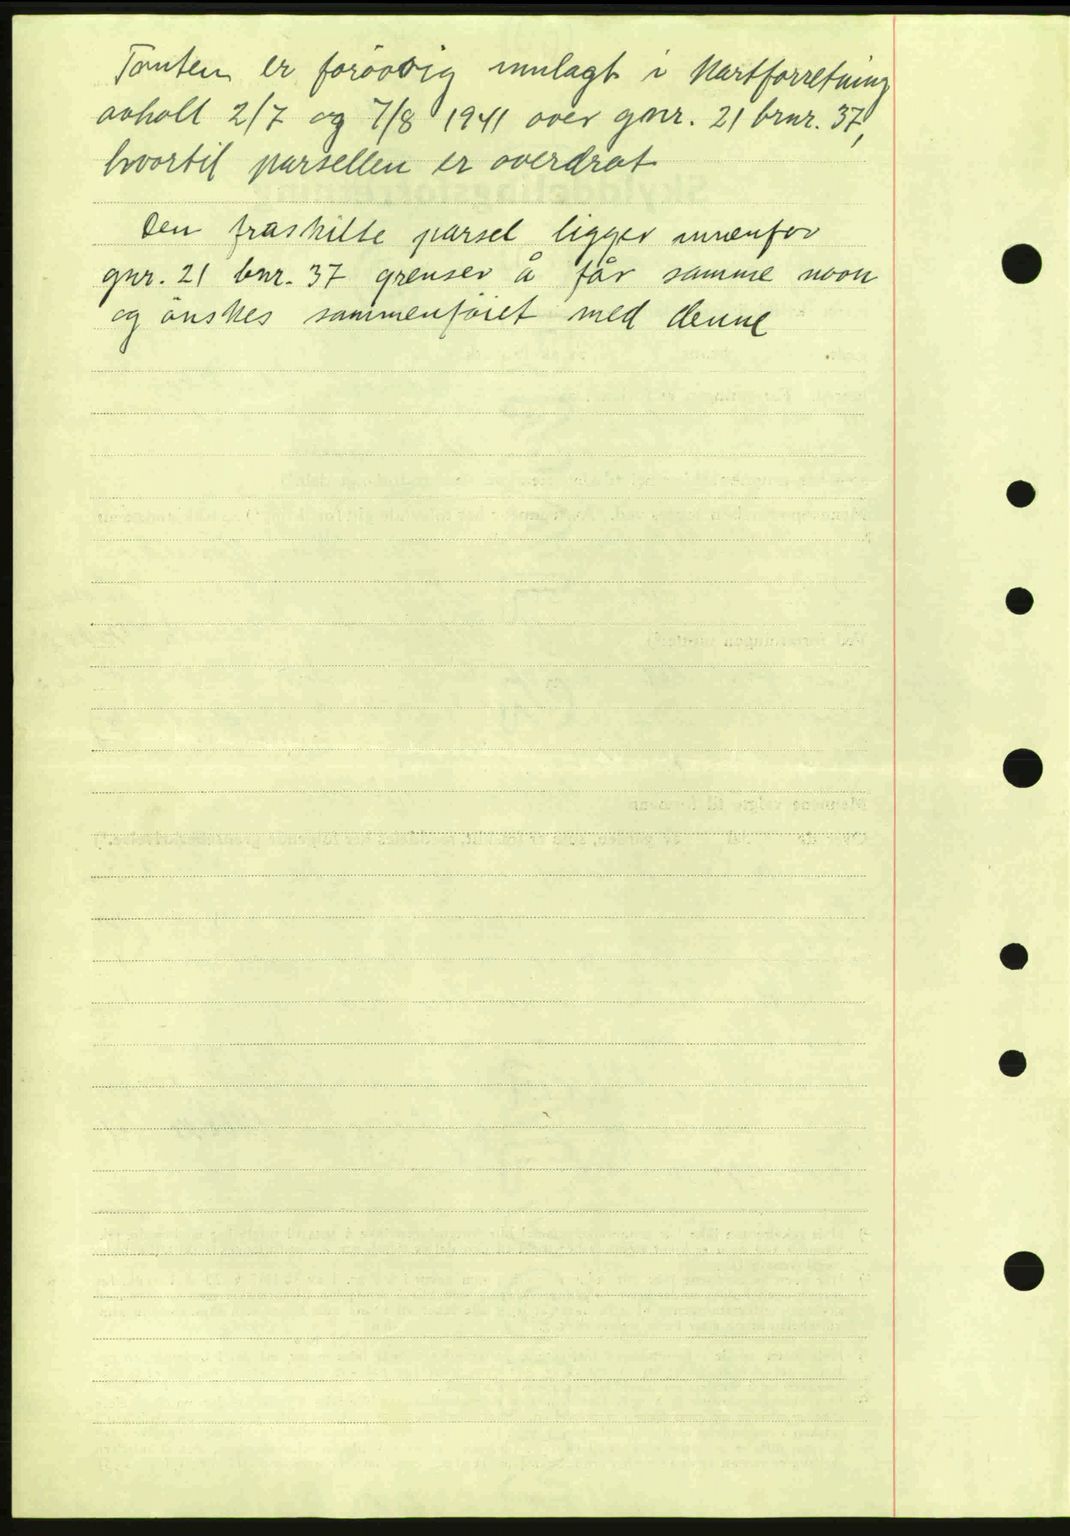 Tomten er forøvrig innlagt i Kartforretning
avholt 2/7 og 7/8 1941 over gnr. 21 brnr. 37,
hvortil parsellen er overdrat
Den fraskilte parsel ligger innenfor
gnr. 21 bnr. 37 grenser å får samme navn
og önskes sammenføiet med denne